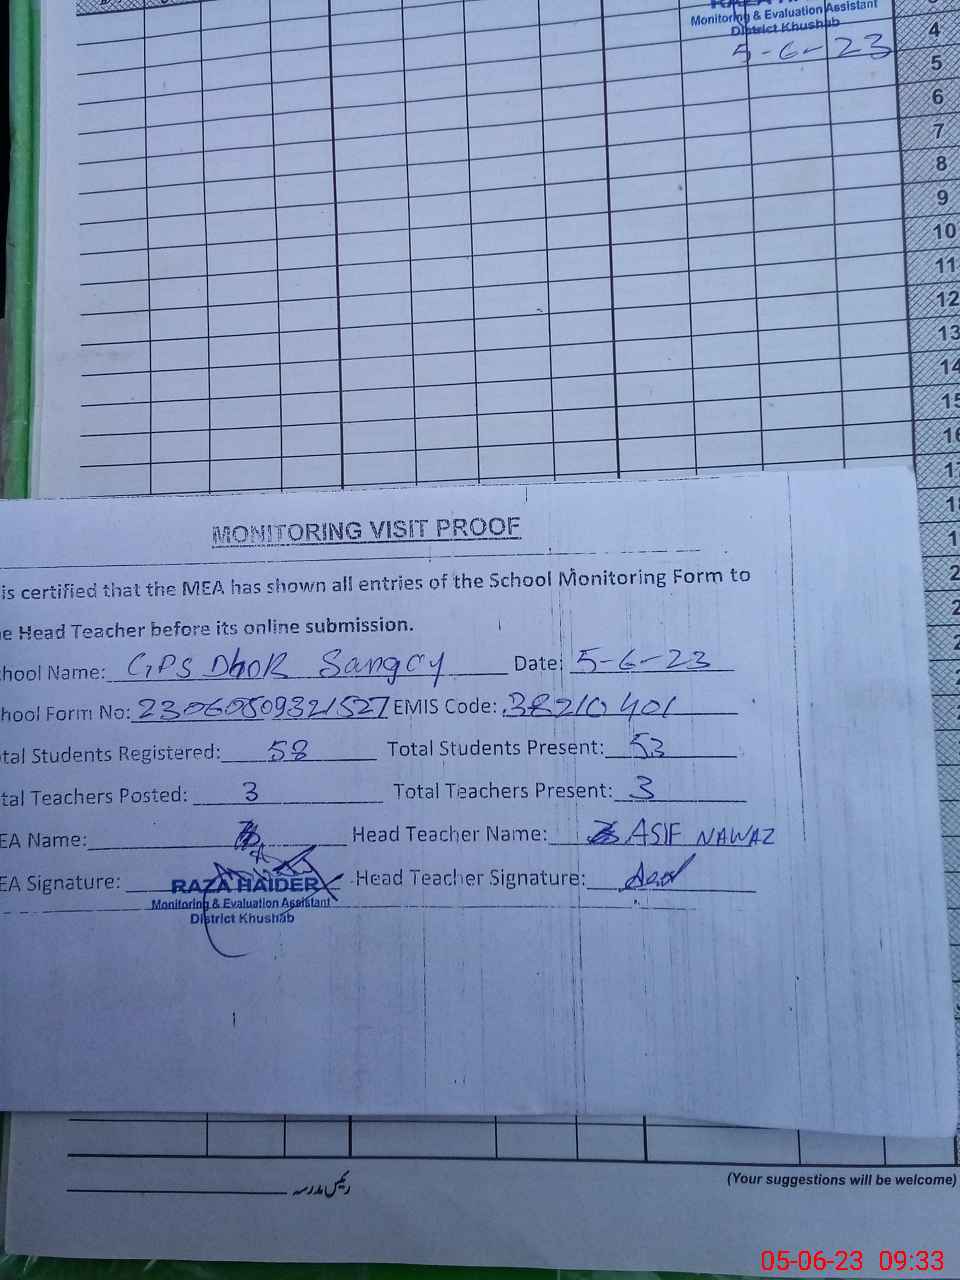 Monitoring & Evaluation Assistant
District Khushab
5-6-23
4
5
6
7
8
9
10
11
12
13
14
15
16
MONITORING VISIT PROOF
is certified that the MEA has shown all entries of the School Monitoring Form to
e Head Teacher before its online submission.
hool Name: GPS Dhok Sangoy Date: 5-6-23
hool Form No: 23060509321527 EMIS Code: 38210401
tal Students Registered: 58 Total Students Present: 53
tal Teachers Posted: 3 Total Teachers Present: 3
EA Name: Head Teacher Name: ASIF NAWAZ
EA Signature: Head Teacher Signature:
RAZA HAIDER
Monitoring & Evaluation Assistant
District Khushab
رئیس مدرسہ
(Your suggestions will be welcome)
05-06-23 09:33